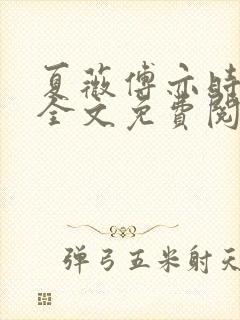 夏薇傅亦时
全文免費閱
弹弓五米射天